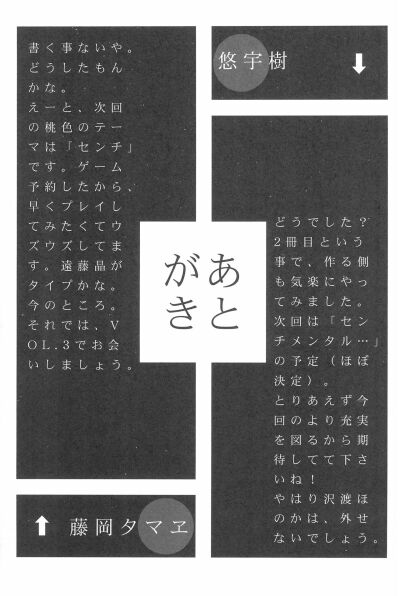 あと
がき
悠宇樹
↓
どうでした?
2冊目という
事で、作る側
も気楽にやっ
てみました。
次回は「セン
チメンタル…」
の予定(ほぼ
決定)。
とりあえず今
回のより充実
を図るから期
待してて下さ
いね!
やはり沢渡ほ
のかは、外せ
ないでしょう。
書く事ないや。
どうしたもん
かな。
えーと、次回
の桃色のテー
マは「センチ」
です。ゲーム
予約したから、
早くプレイし
てみたくてウ
ズウズしてま
す。遠藤晶が
タイプかな。
今のところ。
それでは、V
OL.3でお会
いしましょう。
↑
藤岡タマヱ